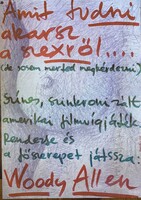 "Amit tudni
akarsz
a szexről....
(de sosem merted megkérdezni)
Színes, szinkronizált
amerikai filmvígjáték
Rendezte és
a főszerepet játssza:
Woody Allen